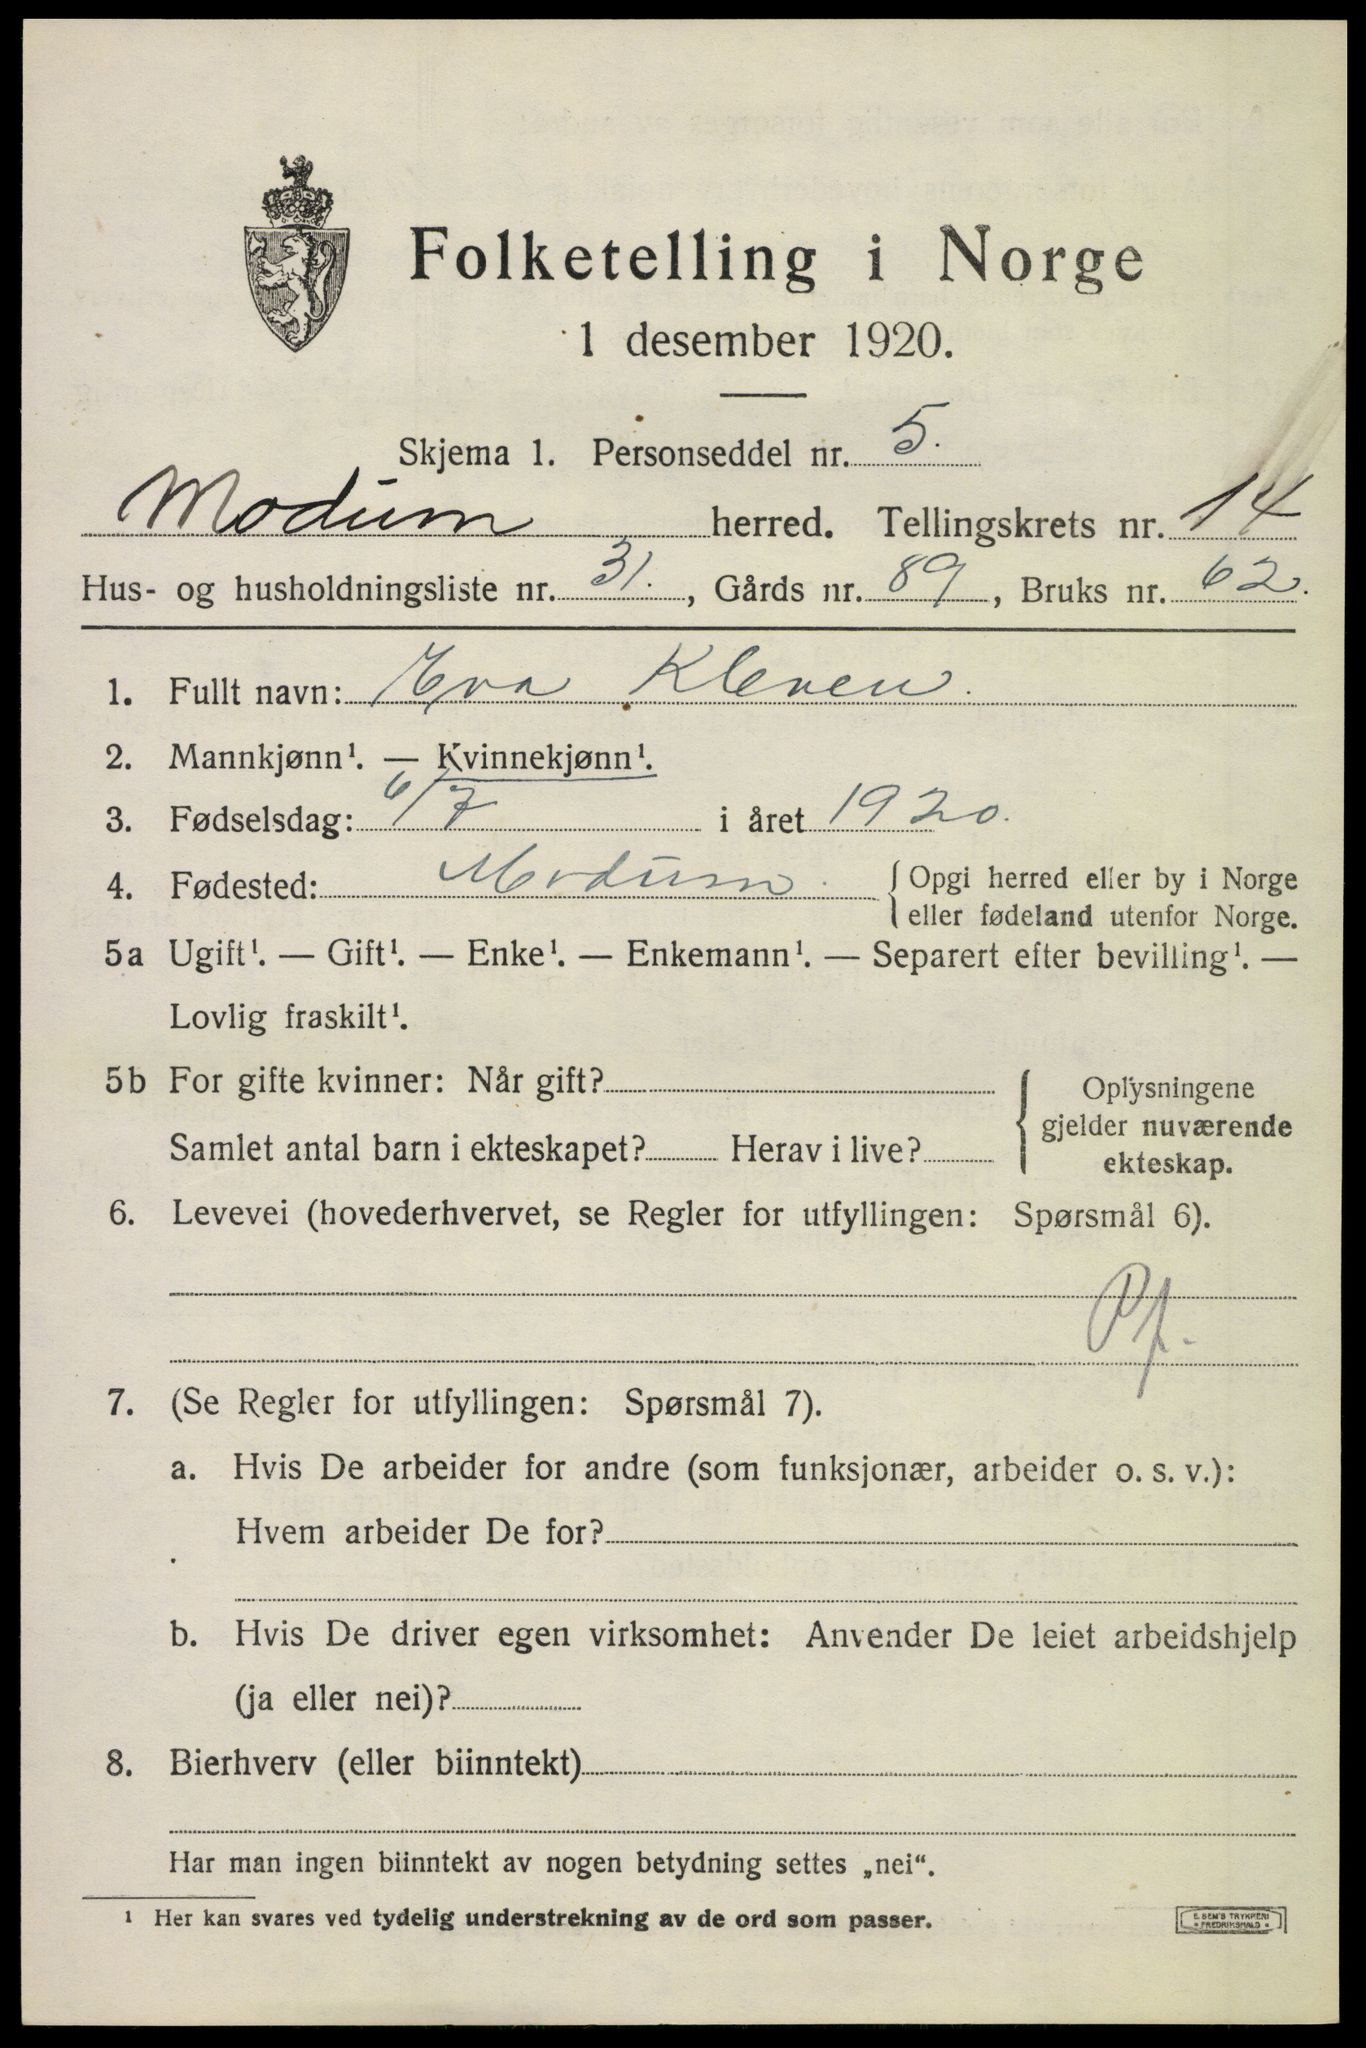 Folketelling i Norge
1 desember 1920.
Skjema 1. Personseddel nr. 5.
Modum herred. Tellingskrets nr. 14
Hus- og husholdningsliste nr. 31., Gårds nr. 89, Bruks nr. 62.
1. Fullt navn: Eva Kleven.
2. Mannkjønn¹. — Kvinnekjønn¹.
3. Fødselsdag: 6/7 i året 1920.
4. Fødested: Modum. {Opgi herred eller by i Norge
eller fødeland utenfor Norge.
5a Ugift¹. — Gift¹. — Enke¹. — Enkemann¹. — Separert efter bevilling¹. —
Lovlig fraskilt¹.
5b For gifte kvinner: Når gift? { Oplysningene
gjelder nuværende
Samlet antal barn i ekteskapet? Herav i live?
ekteskap.
6. Levevei (hovederhvervet, se Regler for utfyllingen: Spørsmål 6).
Pf.
7. (Se Regler for utfyllingen: Spørsmål 7).
a. Hvis De arbeider for andre (som funksjonær, arbeider o. s. v.):
Hvem arbeider De for?
b. Hvis De driver egen virksomhet: Anvender De leiet arbeidshjelp
(ja eller nei)?
8. Bierhverv (eller biinntekt)
Har man ingen biinntekt av nogen betydning settes „nei“.
¹ Her kan svares ved tydelig understrekning av de ord som passer.
E. SEM'S TRYKKERI
FREDRIKSHALD